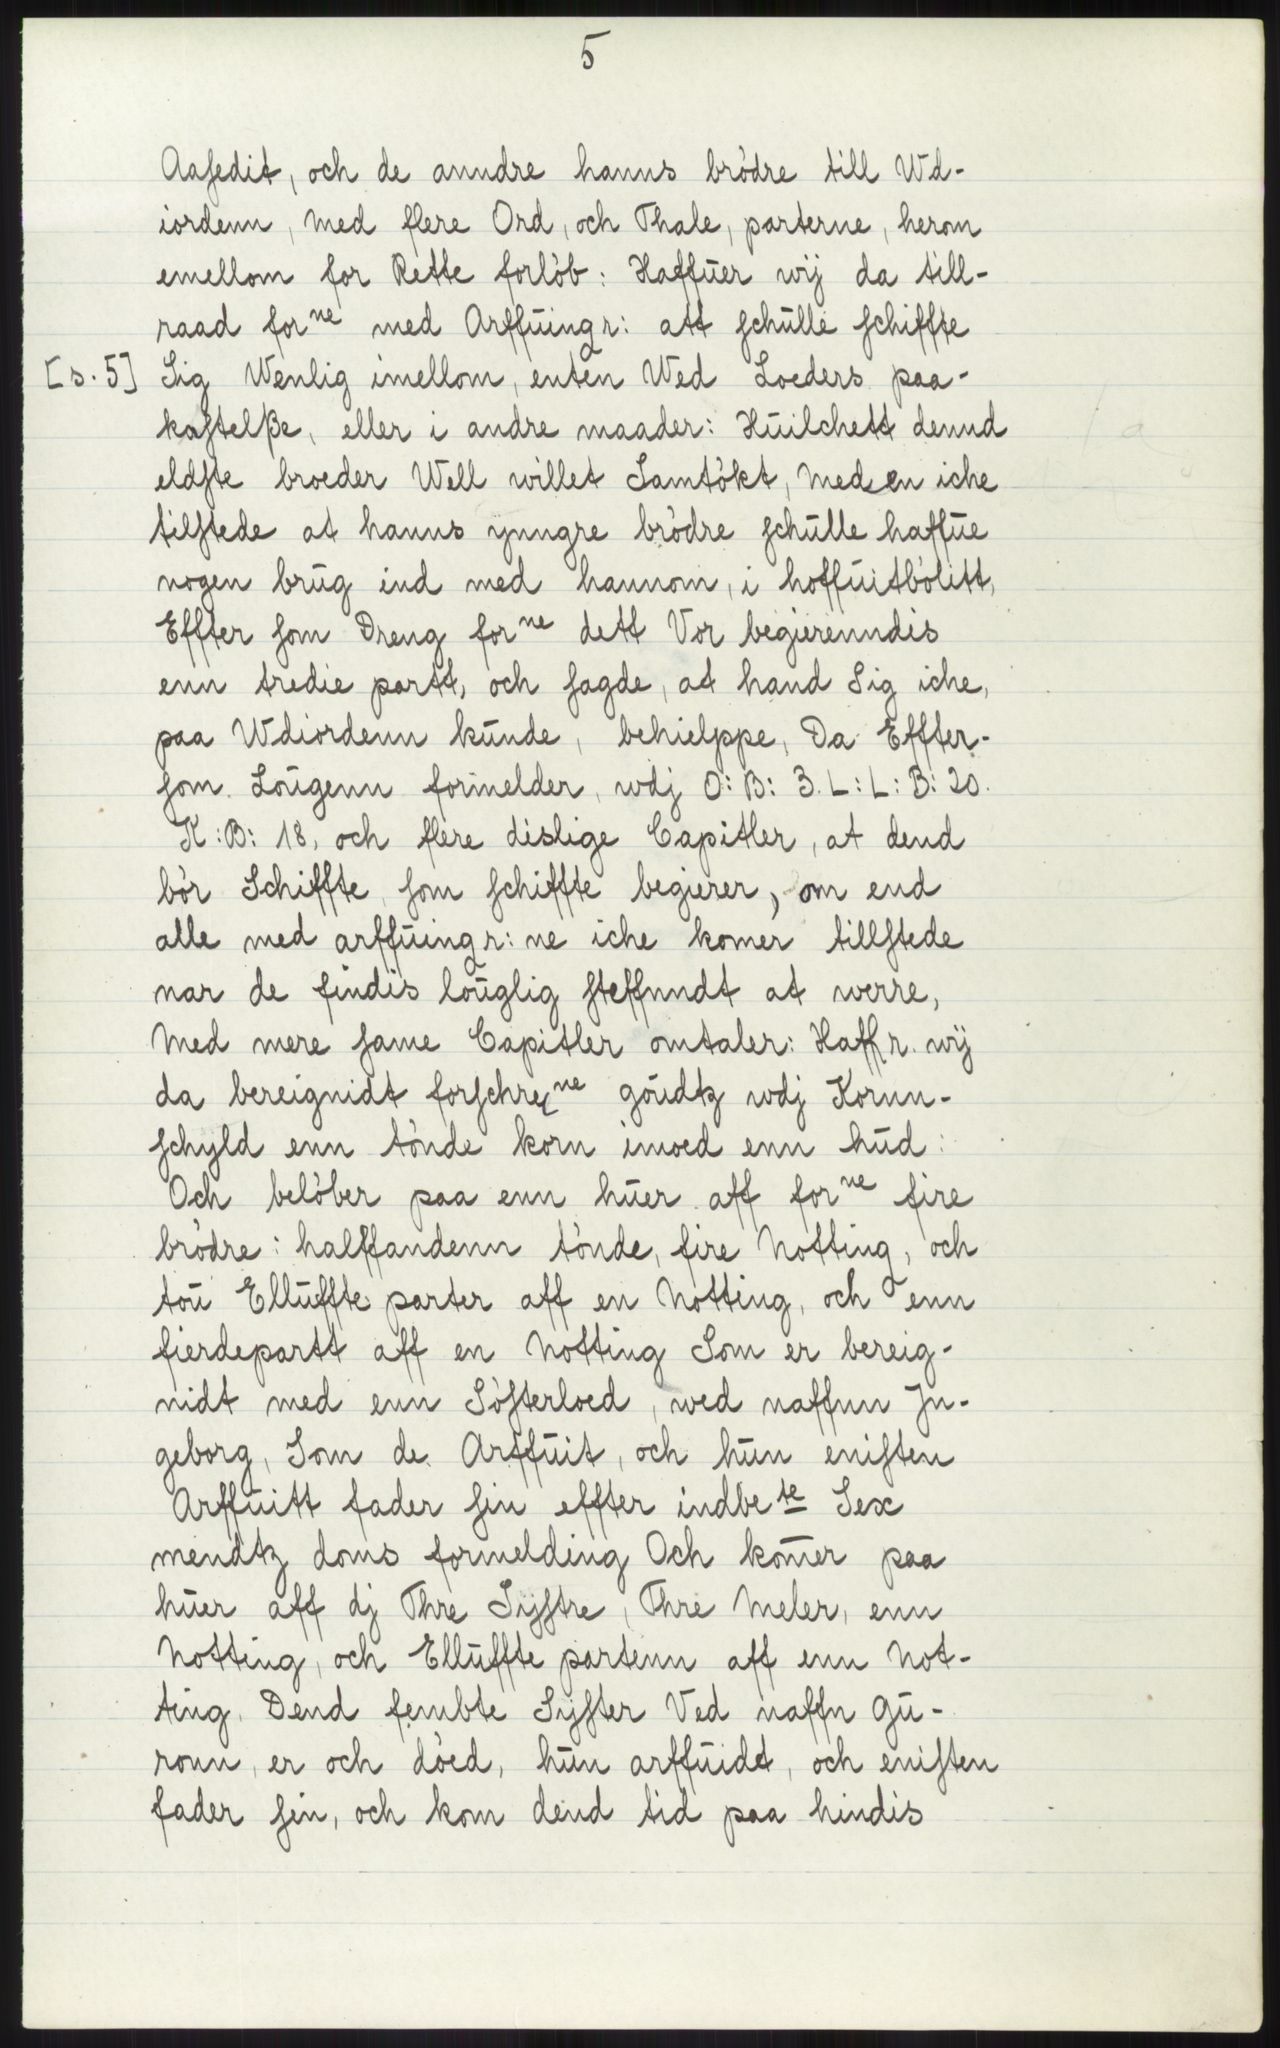 5
Aasedit, och de anndre hanns brödre till Wd-
iordenn, med flere Ord, och Thale, parterne, herom
emellom for Rette forlöb: Haffuer wij da till-
raad for ne med Arffuing r: att schulle schiffte
[s. 5] Sig Wenlig imellom, enten Wed Loeders paa-
kastelße, eller i andre maader: Huilchett dennd
eldste broeder Well willet Samtökt, meden iche
tilstede at hanns ynngre brödre schulle haffue
nogen brug ind med hannom, i hoffuitbölitt,
Effter som Dreng for ne dett Vor begierenndis
enn tredie partt, och sagde, at hand Sig iche,
paa Wdiordenn kunde, behielppe, Da Effter-
som Lougenn formelder, wdj O: B: 3. L: L: B: 20.
K: B: 18, och flere dislige Capitler, at dend
bör Schiffte, som schiffte begierer, om end
alle med arffuing r: ne iche komer tillstede
nar de findis louglig steffnndt at werre,
Med mere same Capitler omtaler: Haff r. wij
da bereignidt forschre ne goudtz wdj Kornn-
schyld enn tönde korn imoed enn hud:
Och belöber paa enn huer aff for ne fire
brödre: halffandenn tönde, fire Notting, och
tou Elluffte parter aff en Notting, och enn
fierdepartt aff en Notting Som er bereig-
nidt med enn Sösterloed, wed naffnn Jn-
geborg, Som de Arffuit, och hun enisten
Arffuitt fader sin effter indbe te Sex
mendtz doms formelding Och kom̄er paa
huer aff dj Thre Systre, Thre Meler, enn
Notting, och Elluffte partenn aff enn Not-
ting. Dend fembte Syster Ved naffn Gu-
ronn, er och döed, hun arffuidt, och enisten
fader sin, och kom dend tid paa hindis